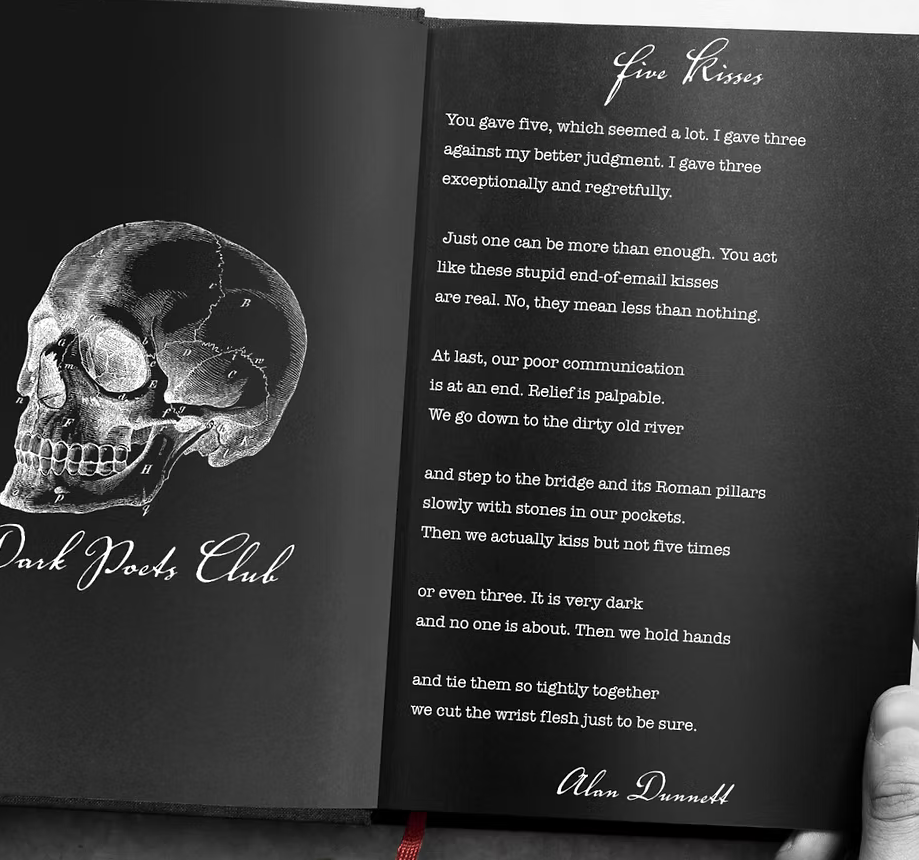 Dark Poets Club
Five Kisses
You gave five, which seemed a lot. I gave three
against my better judgment. I gave three
exceptionally and regretfully.
Just one can be more than enough. You act
like these stupid end-of-email kisses
are real. No, they mean less than nothing.
At last, our poor communication
is at an end. Relief is palpable.
We go down to the dirty old river
and step to the bridge and its Roman pillars
slowly with stones in our pockets.
Then we actually kiss but not five times
or even three. It is very dark
and no one is about. Then we hold hands
and tie them so tightly together
we cut the wrist flesh just to be sure.
Alan Dunnett